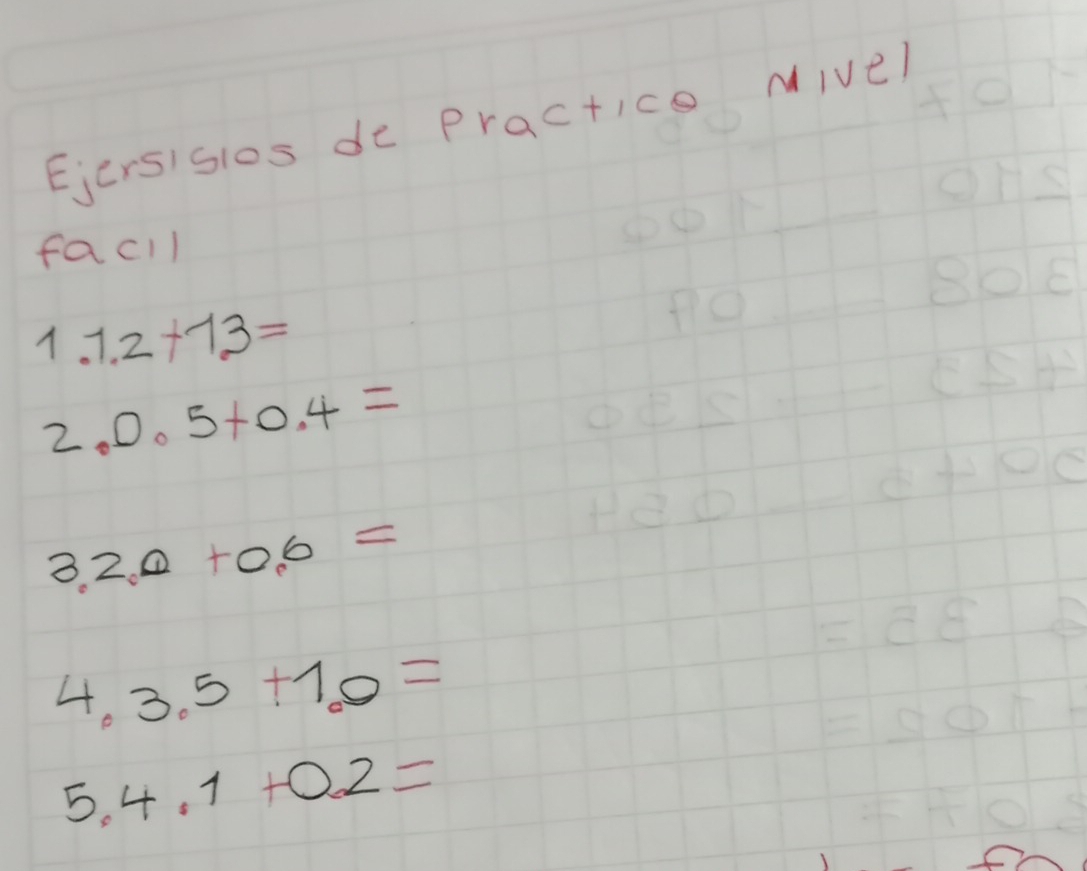 Ejersisios de Practico Nivel
facil
1.1.2+1.3=
2.0.5+0.4=
3.2.0+0.6=
4.3.5+1.0=
5.4.1+0.2=